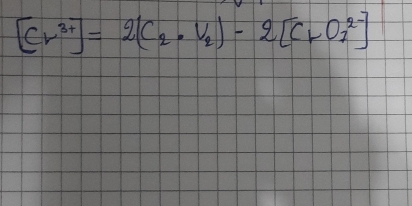 [Cr³⁺] = 2(C₂ . V₂) - 2[CrO₇²⁻]